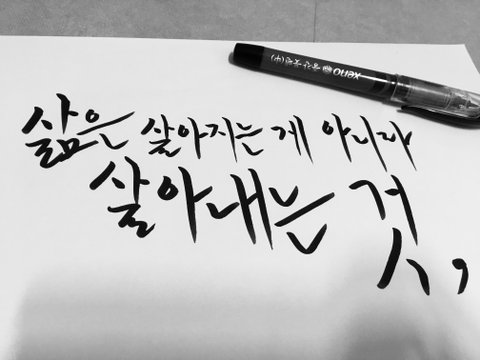 삶은 살아지는 게 아니라
살아내는 것,
xeno